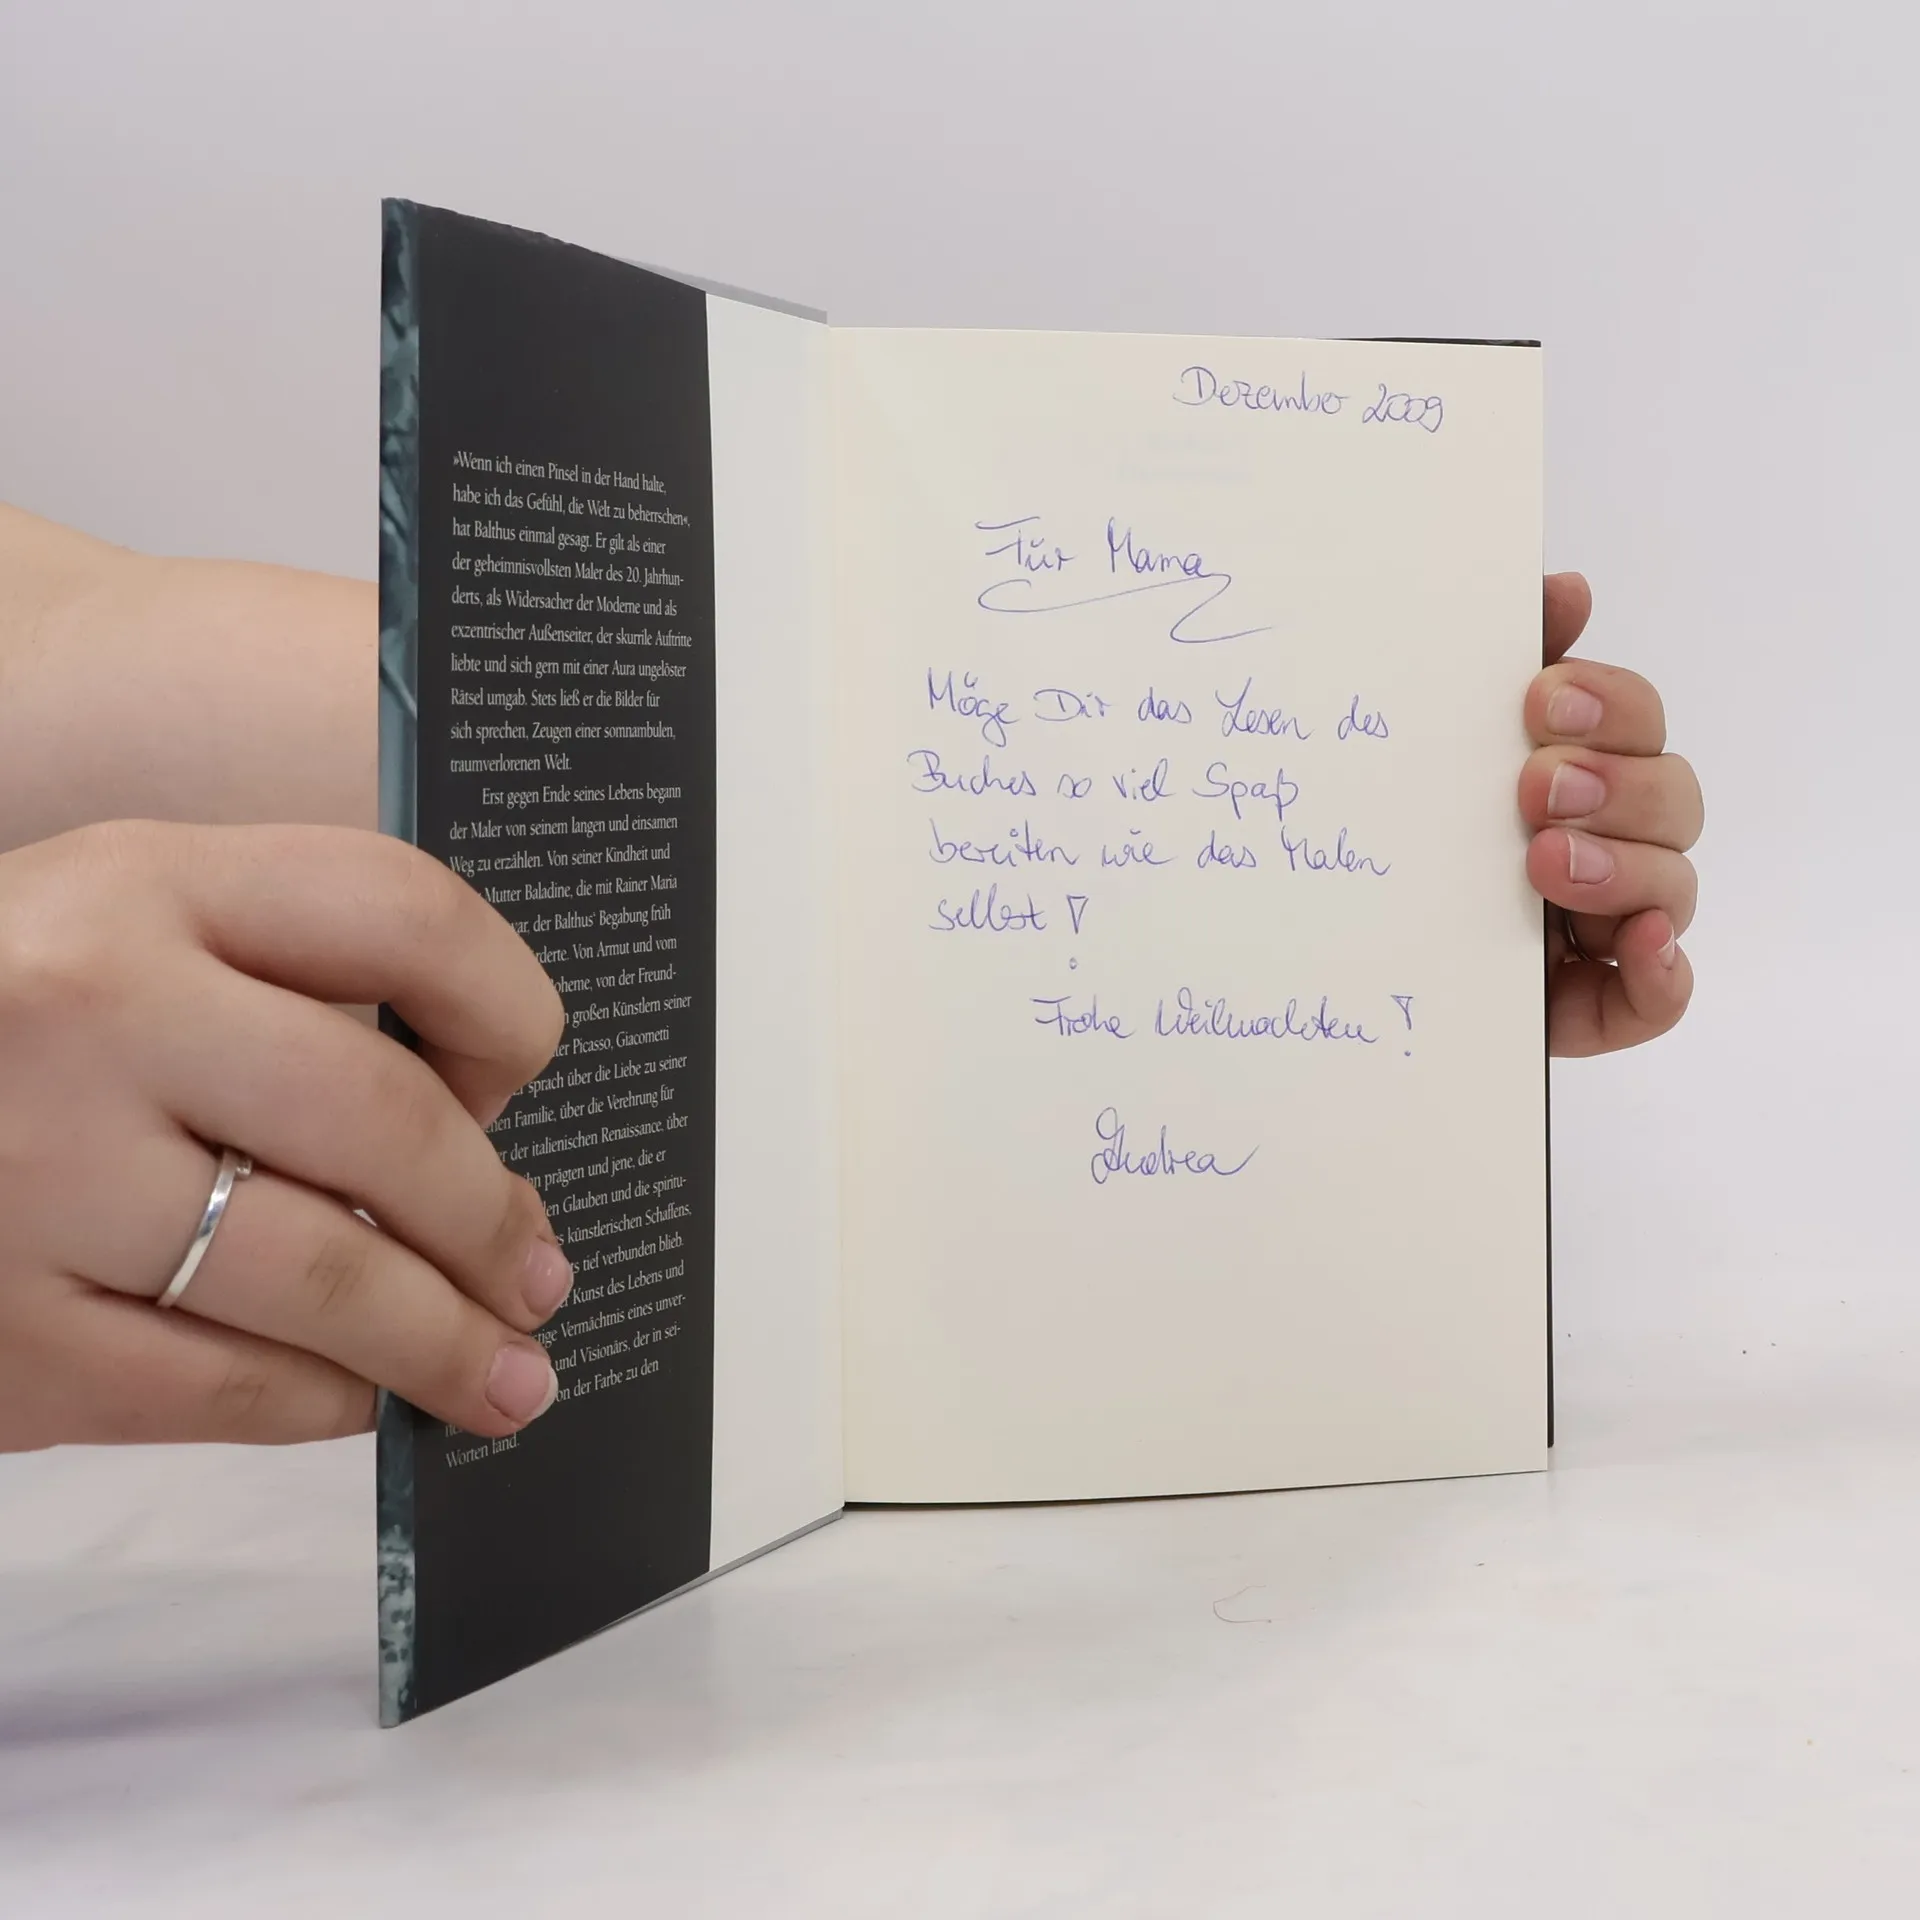 »Wenn ich einen Pinsel in der Hand halte,
habe ich das Gefühl, die Welt zu beherrschen«,
hat Balthus einmal gesagt. Er gilt als einer
der geheimnisvollsten Maler des 20. Jahrhun-
derts, als Widersacher der Moderne und als
exzentrischer Außenseiter, der skurrile Auftritte
liebte und sich gern mit einer Aura ungelöster
Rätsel umgab. Stets ließ er die Bilder für
sich sprechen, Zeugen einer somnambulen,
traumverlorenen Welt.
Erst gegen Ende seines Lebens begann
der Maler von seinem langen und einsamen
Weg zu erzählen. Von seiner Kindheit und
Mutter Baladine, die mit Rainer Maria
war, der Balthus' Begabung früh
Von Armut und vom
von der Freund-
großen Künstlern seiner
Picasso, Giacometti
sprach über die Liebe zu seiner
Familie, über die Verehrung für
der italienischen Renaissance, über
prägten und jene, die er
Glauben und die spiritu-
künstlerischen Schaffens,
tief verbunden blieb.
Kunst des Lebens und
Vermächtnis eines unver-
und Visionärs, der in sei-
der Farbe zu den
Worten fand.
Dezember 2009
Für Mama
Möge Dir das Lesen des
Buches so viel Spaß
bereiten wie das Malen
selbst!
Frohe Weihnachten!
Andrea